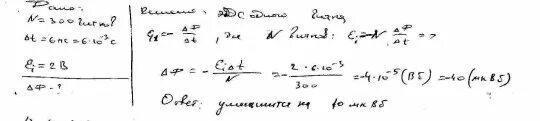 Дано:
N = 300 витков
Δt = 6 мс = 6·10⁻³ с
ℰi = 2 В
ΔФ - ?
Решение: ЭДС одного витка
ℰi = - ΔФ/Δt, для N витков: ℰi = -N ΔФ/Δt =>
ΔФ = - ℰiΔt/N = - 2·6·10⁻³/300 = -4·10⁻⁵ (Вб) = -40 (мкВб)
Ответ: уменьшится на 40 мкВб